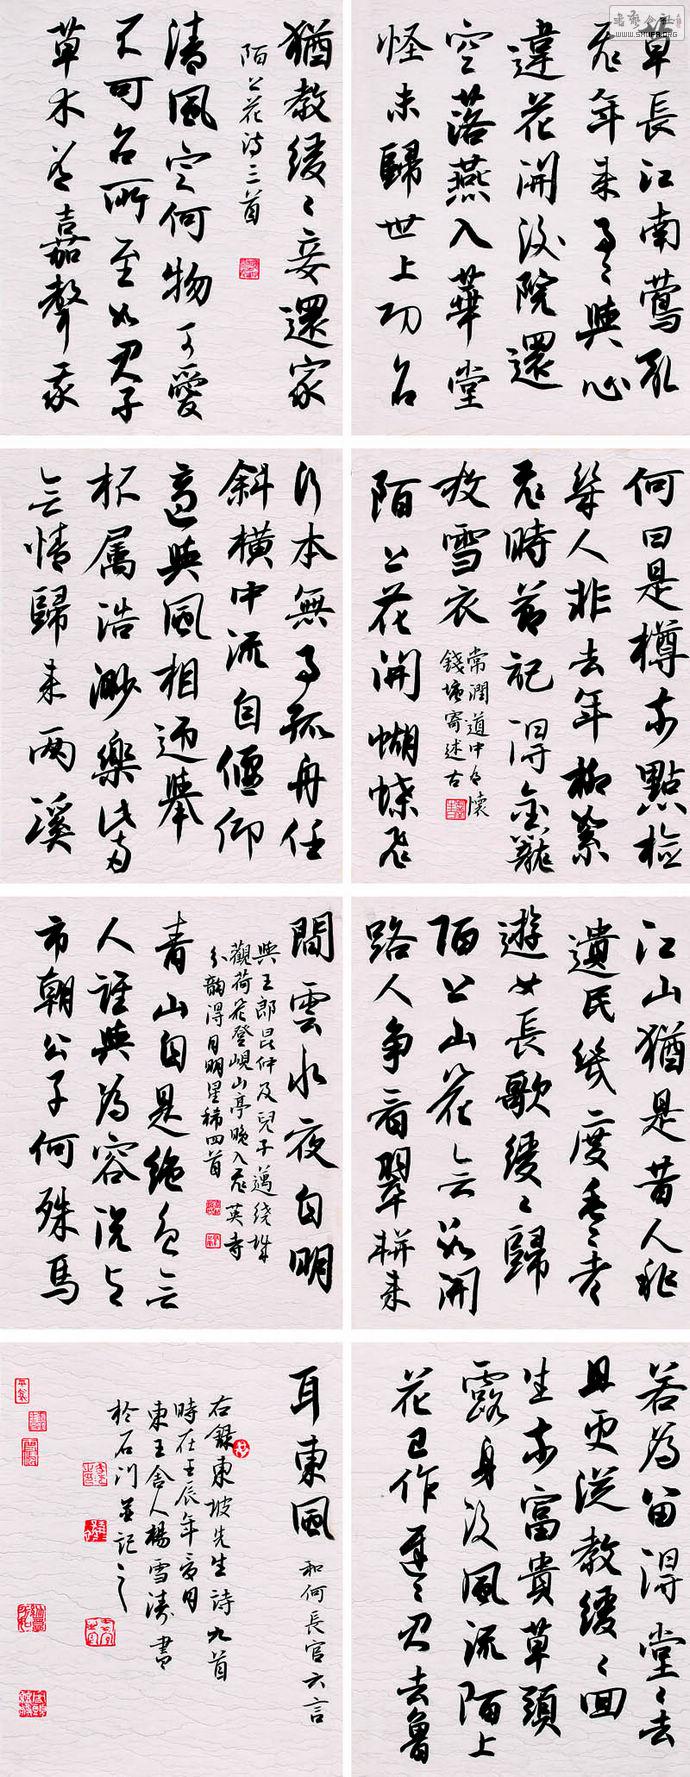 草長江南鶯亂
飛年来事事與心
違花開後院還
空落燕入華堂
怪未歸世上功名
何日是樽前點檢
幾人非去年柳絮
飛時節記得金籠
放雪衣
常潤道中有懷
錢塘寄述古
陌上花開蝴蝶飛
江山猶是昔人非
遺民幾度垂垂老
遊女長歌緩緩歸
陌上山花無數開
路人争看翠軿来
若為留得堂堂去
且更從教緩緩回
生前富貴草頭
露身後風流陌上
花已作遲遲君去魯
猶教緩緩妾還家
陌上花诗三首
清風定何物可愛
不可名所至如君子
草木有嘉聲我
行本無事孤舟任
斜横中流自偃仰
適與風相迎舉
杯属浩渺樂此兩
無情歸来兩溪
間雲水夜自明
與王郎昆仲及兒子邁繞城
觀荷花登峴山亭晚入飛英寺
分韻得月明星稀四首
青山自是絶色無
人誰與為容說與
市朝公子何殊馬
耳東風
和何長官六言
右錄東坡先生詩九首
時在壬辰年夏月
東王舍人楊雪濤書
於石門並記之
WWW.SHUFA.ORG